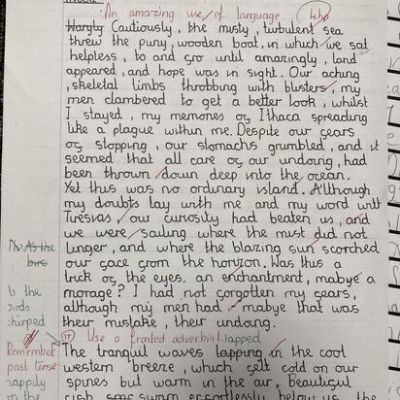 An amazing use of language.
Hargty Cautiously, the misty, turbulent sea
threw the puny, wooden boat, in which we sat
helpless, to and fro until amazingly, land
appeared, and hope was in sight. Our aching
, skeletal limbs throbbing with blisters, my
men clambered to get a better look, whilst
I stayed, my memories of Ithaca spreading
like a plague within me. Despite our fears
of stopping, our stomachs grumbled, and it
seemed that all care of our undoing, had
been thrown down deep into the ocean.
Yet this was no ordinary island. Although
my doubts lay with me and my word with
Tiresias, our curiosity had beaten us, and
we were sailing where the mist did not
No As the
linger, and where the blazing sun scorched
our face from the horizon. Was this a
trick of the eyes, an enchantment, mabye a
to the
morage? I had not forgotten my fears,
birds
although my men had - mabye that was
chirped
their mistake, their undoing.
Use a fronted adverbial lapped
Remember
The tranquil waves lapping in the cool
past tense
western breeze, which felt cold on our
happily
spines but warm in the air. Beautiful
in the
fish swum effortlessly below us, the